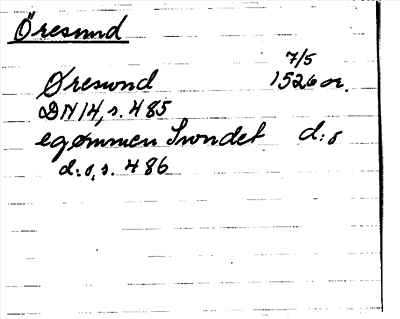 Öresund
7/5
Øreswnd 1526 or.
DN 14, s. 485
egømmen Swndet d:o
d:o, s. 486